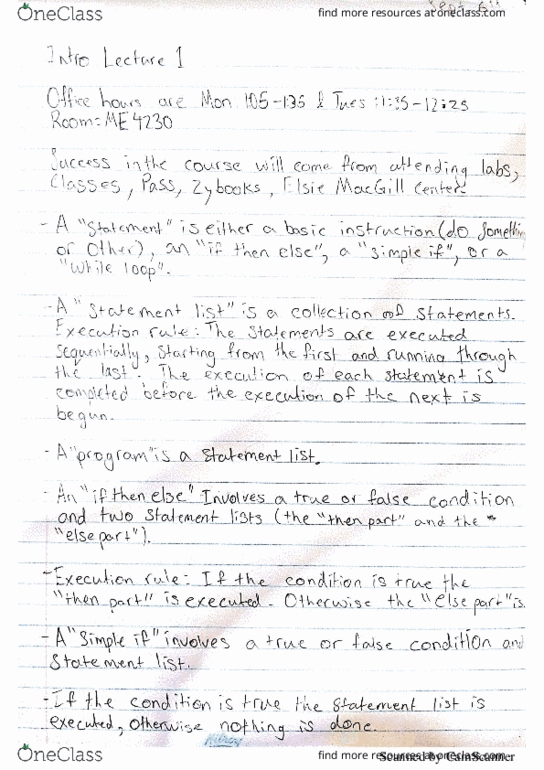 OneClass
find more resources at oneclass.com
Intro Lecture 1
Office hours are Mon 105-135 & Tues 11:35-12:25
Room: ME 4230
Success in the course will come from attending labs,
Classes, Pass, Zybooks, Elsie MacGill Center
- A "Statement" is either a basic instruction (do Somethin
or Other), an "if then else", a "simple if", or a
"while loop".
- A "statement list" is a collection of statements.
Execution rule: The Statements are executed
sequentially, starting from the first and running through
the last. The execution of each statement is
completed before the execution of the next is
begun.
- A "program" is a Statement list.
- An "if then else" Involves a true or false condition
and two Statement lists (the "then part" and the
"else part").
- Execution rule: If the condition is true the
"then part" is executed. Otherwise the "Else part" is.
- A "Simple if" involves a true or false condition and
Statement list.
- If the condition is true the Statement list is
executed, otherwise nothing is done.
OneClass
find more resources at oneclass.com
Scanned by CamScanner